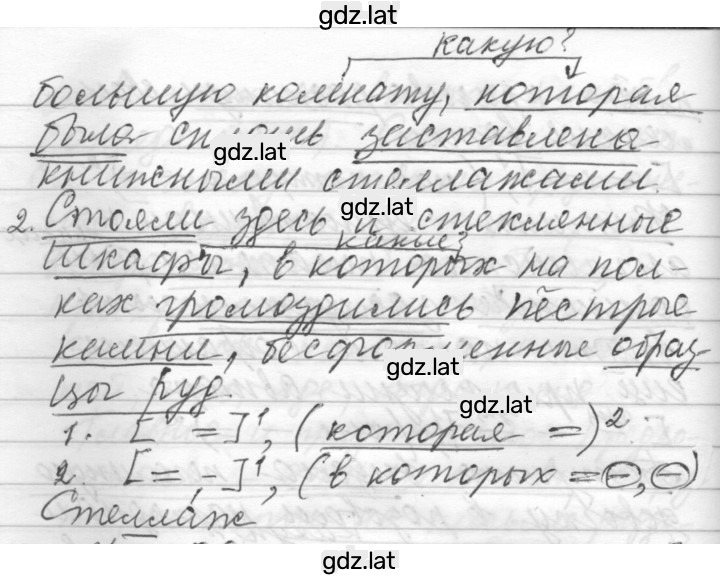 gdz.lat
какую?
большую комнату, которая
была сплошь заставлена
gdz.lat
книжными стеллажами.
gdz.lat
2. Стояли здесь и стеклянные
какие?
шкафы, в которых на пол-
ках громоздились пёстрые
камни, бесформенные образ-
gdz.lat
цы руд.
gdz.lat
1. [ =]¹, (которая =)²
2. [=, -]¹, (в которых =⊖,⊖)
Стеллаж
gdz.lat